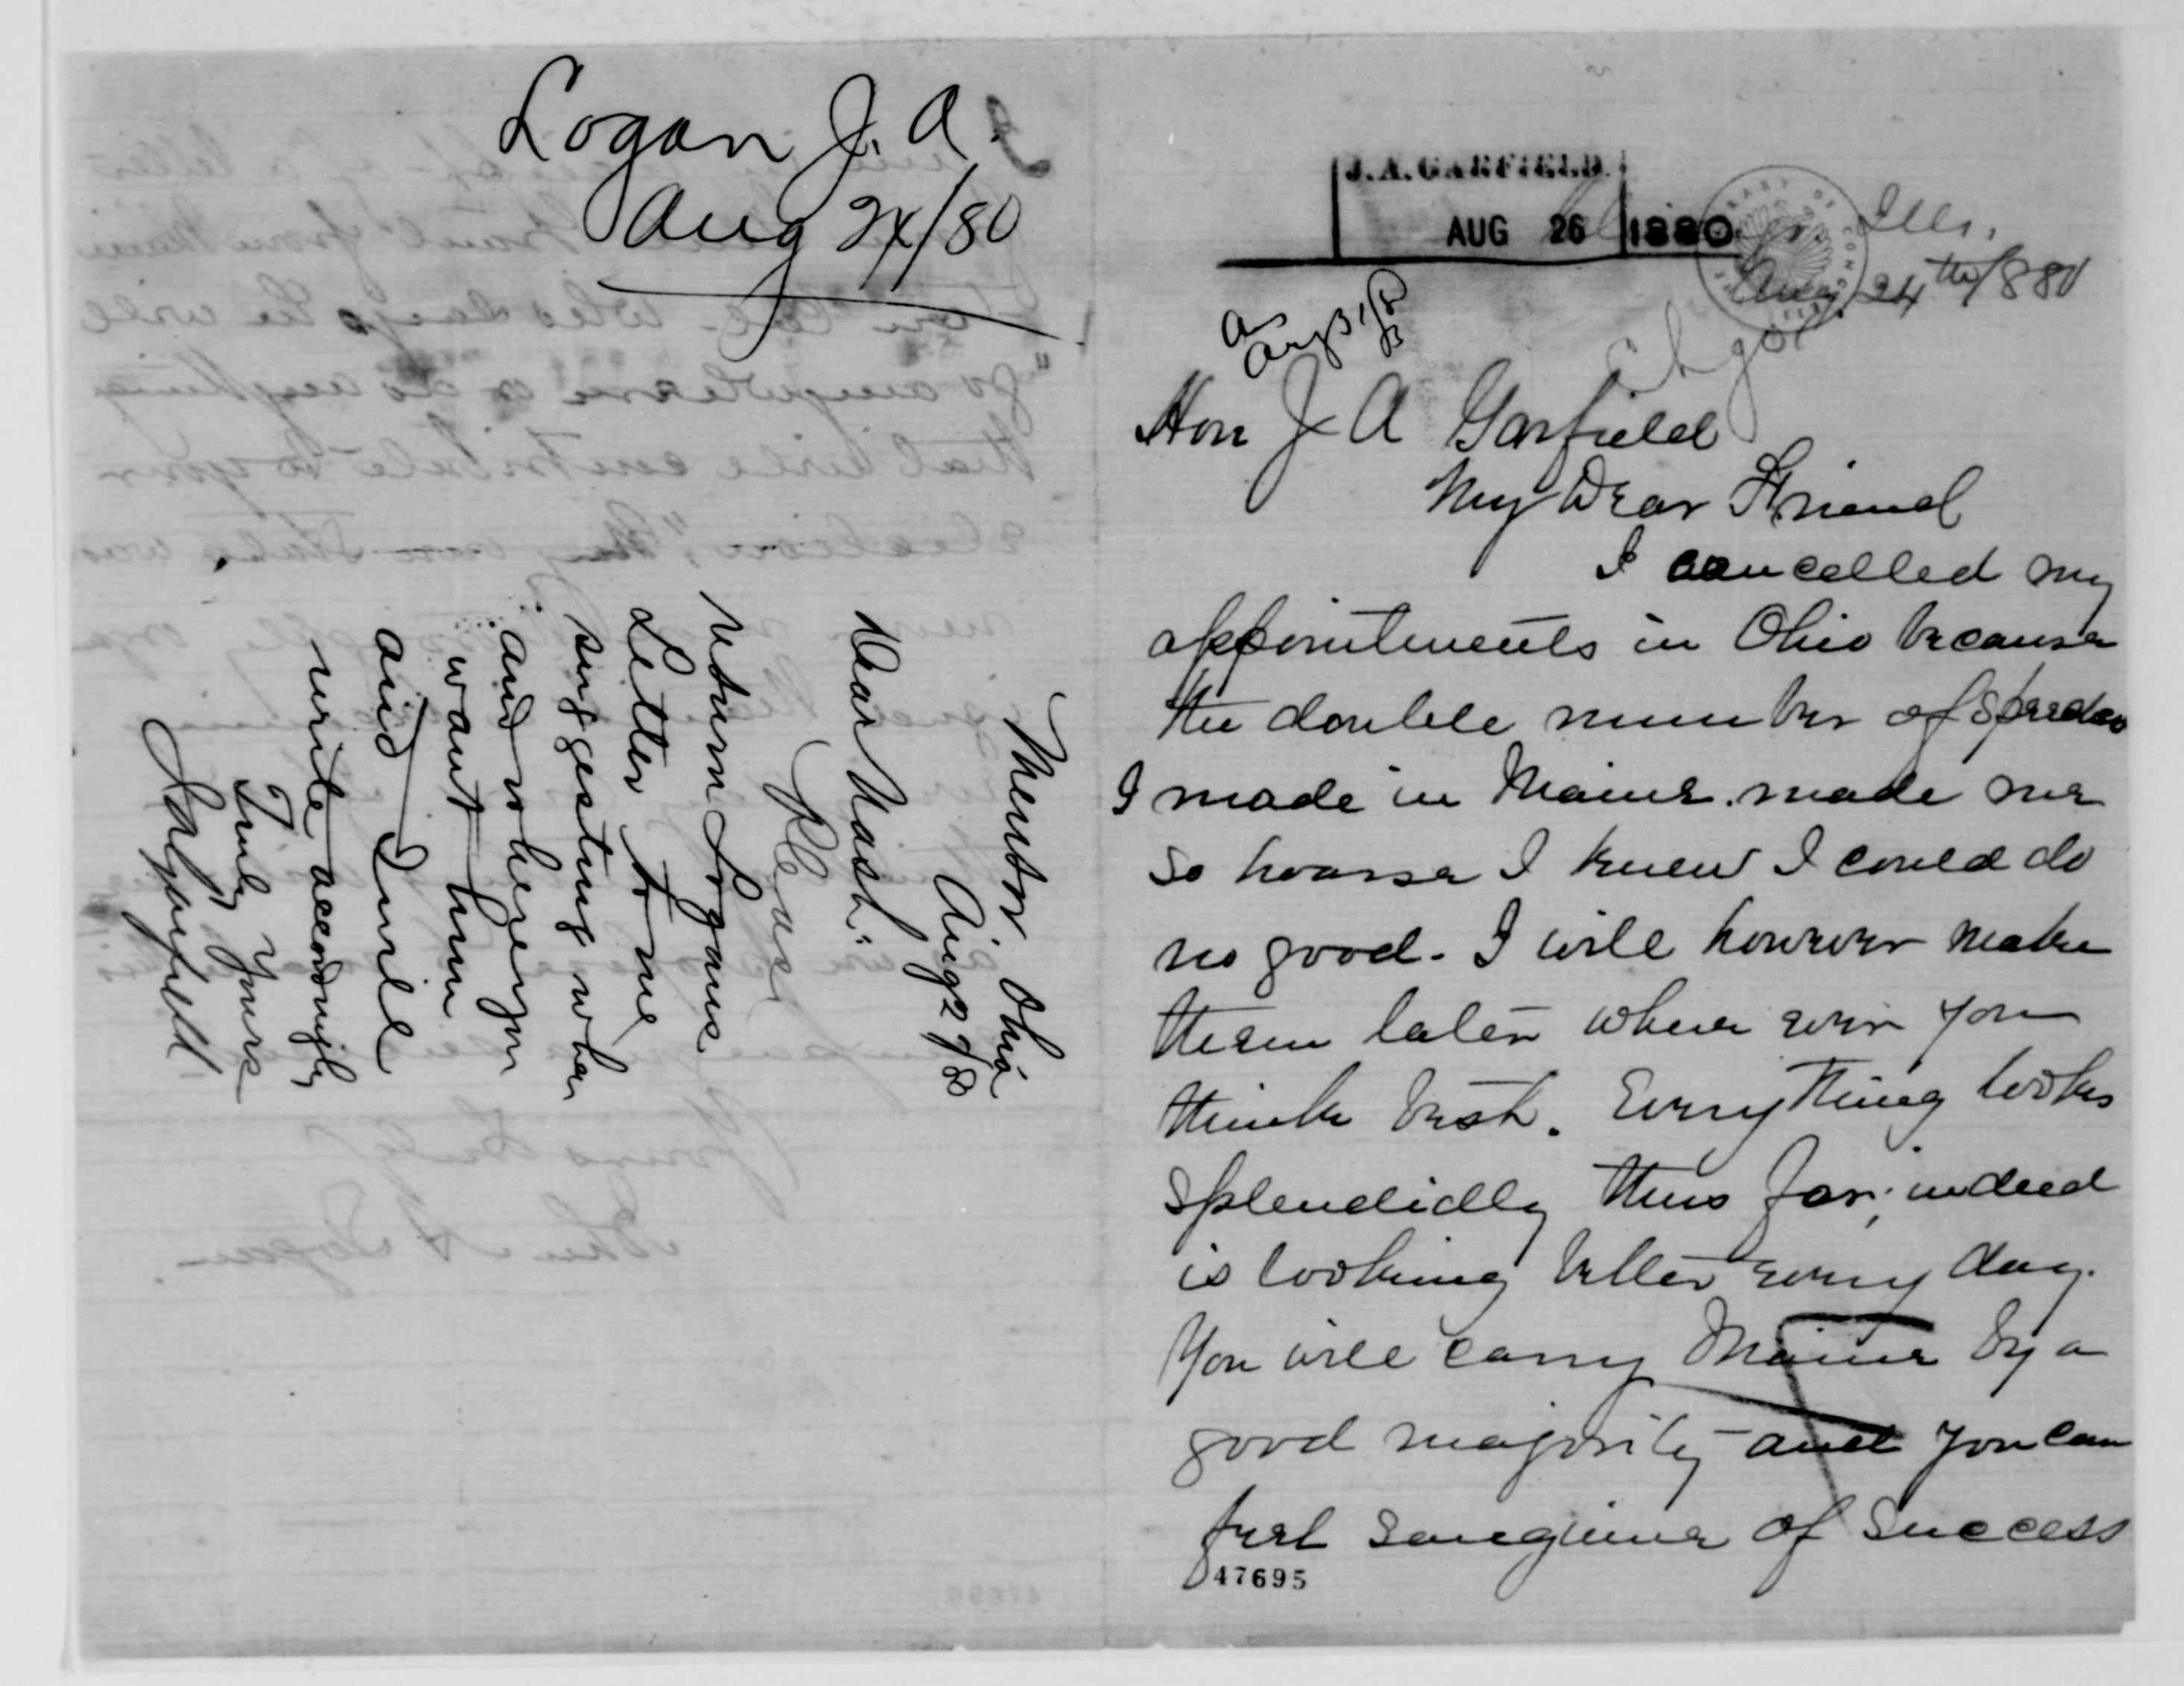 Logan J. A.
Aug 24/80
Mentor. Ohio
Aug 27/80
Dear Nash:
Please
return Logans
Letter to me
suggesting when
and where you
want him
and I will
write accordingly
Truly Yours
JAGarfield
J.A. GARFIELD.
AUG 26 1880
Ills.
Aug 24th/880
Hon J A Garfield
My Dear Friend
I cancelled my
appointments in Ohio because
the double number of Speeches
I made in Maine. made me
so hoarse I knew I could do
no good. I will however make
them later where ever you
think best. Every thing looks
splendidly thus far; indeed
is looking better every day.
You will carry Maine by a
good majority and you can
feel sanguine of success
47695